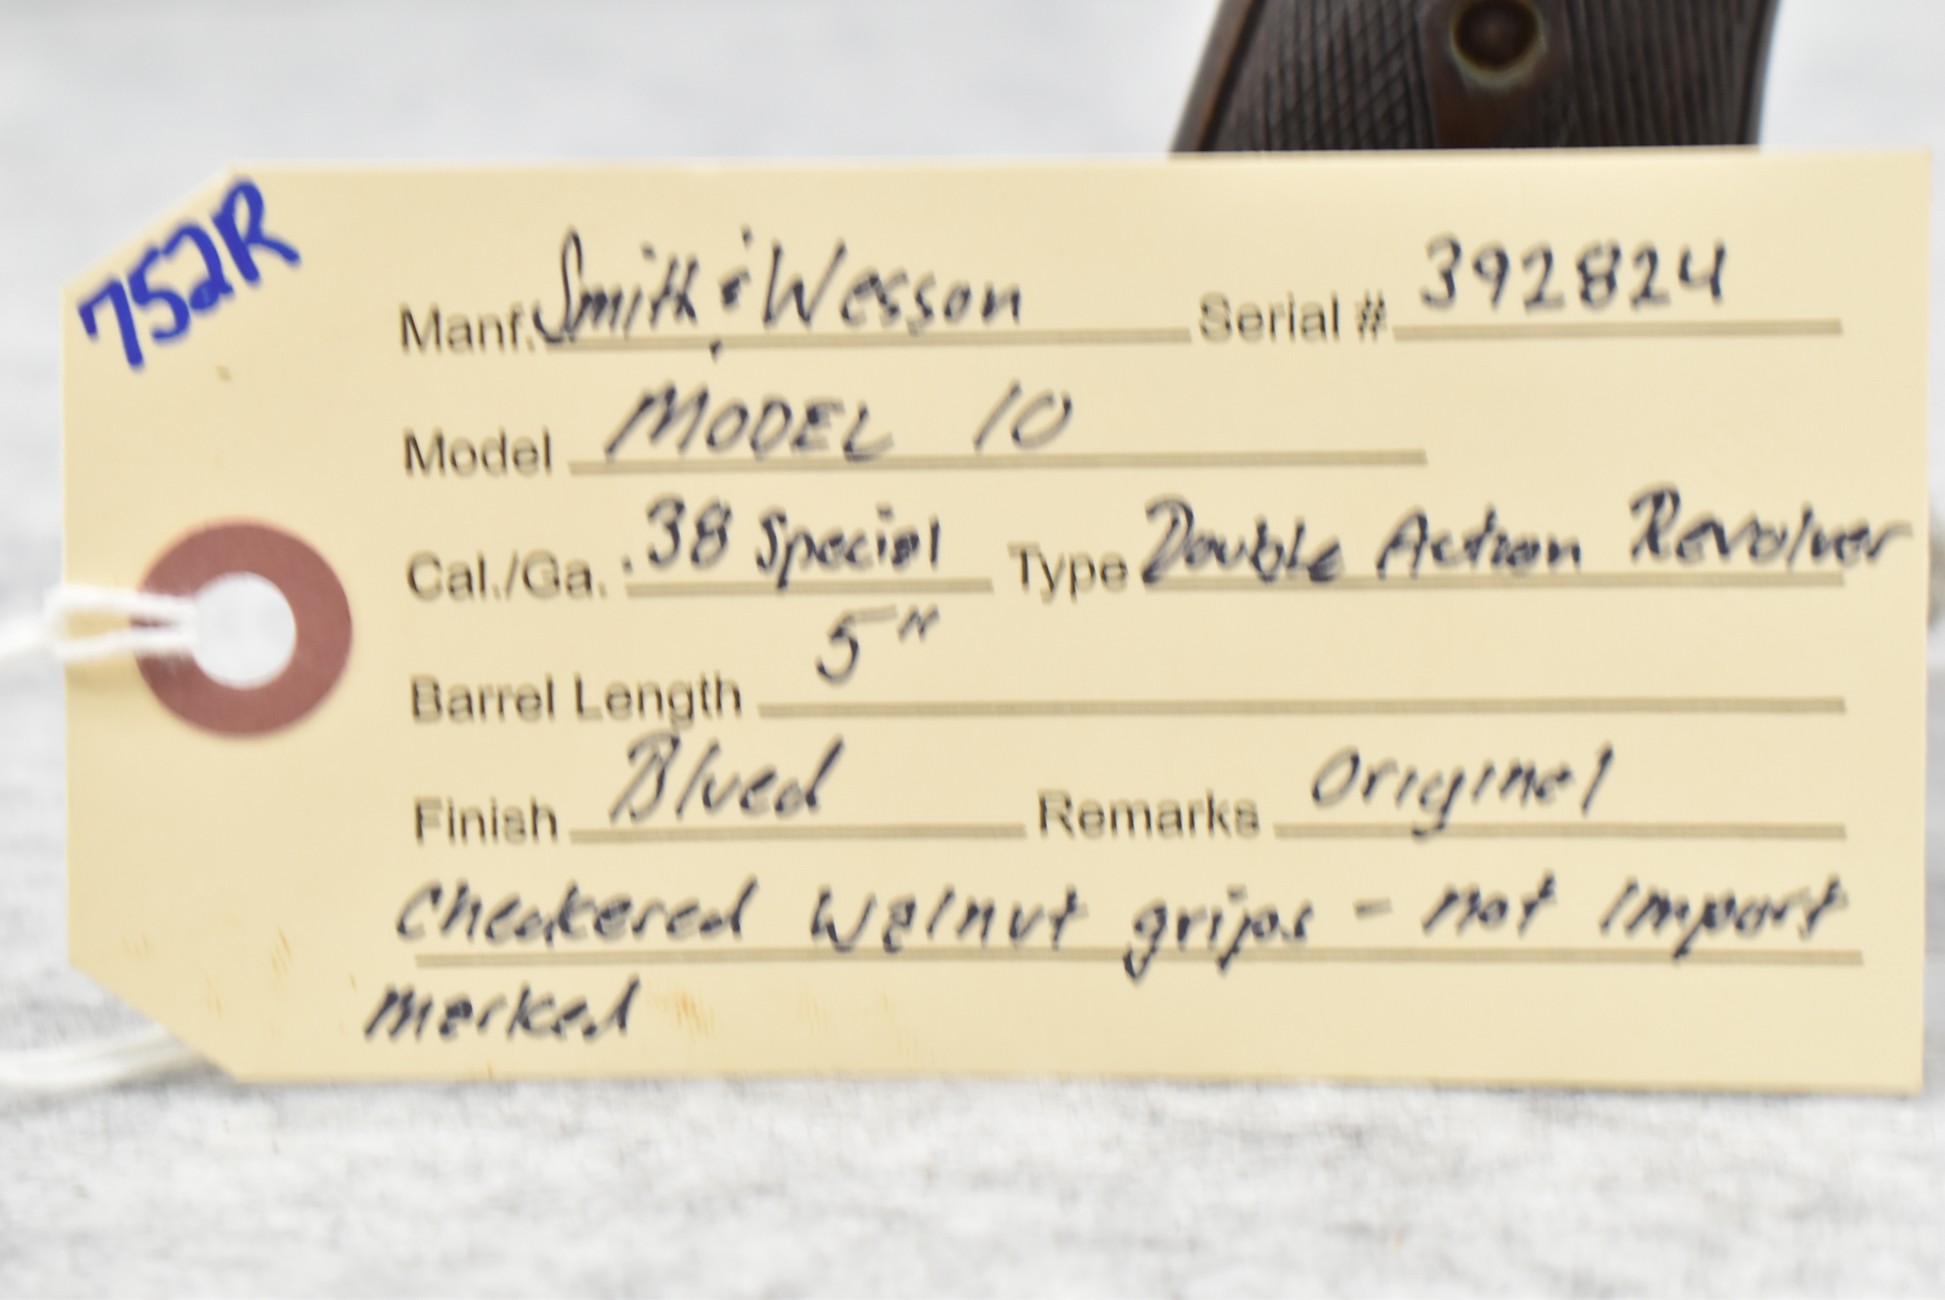 752R
Manf. Smith & Wesson Serial # 392824
Model MODEL 10
Cal./Ga. .38 Special Type Double Action Revolver
Barrel Length 5"
Finish Blued Remarks Original
Checkered Walnut grips - not import
marked